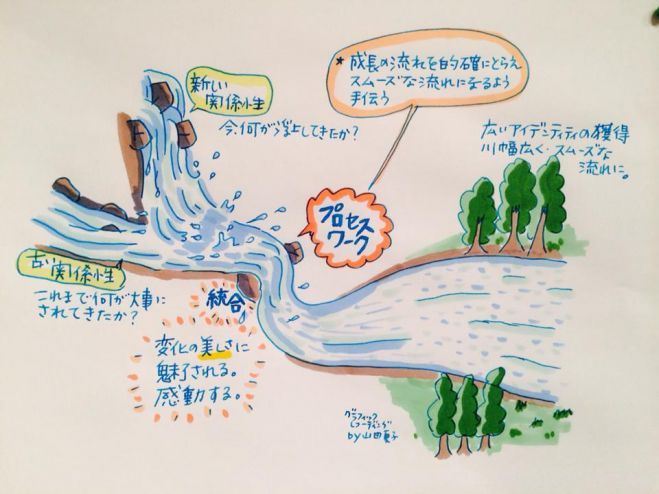 新しい
関係性
今、何が浮上してきたか?
* 成長の流れを的確にとらえ
スムーズな流れになるよう
手伝う
広いアイデンティティの獲得
川幅広く・スムーズな
流れに。
プロセス
ワーク
古い関係性
これまで何が大事に
されてきたか?
統合
変化の美しさに
魅了される。
感動する。
グラフィック
レコーディング
by 山田夏子